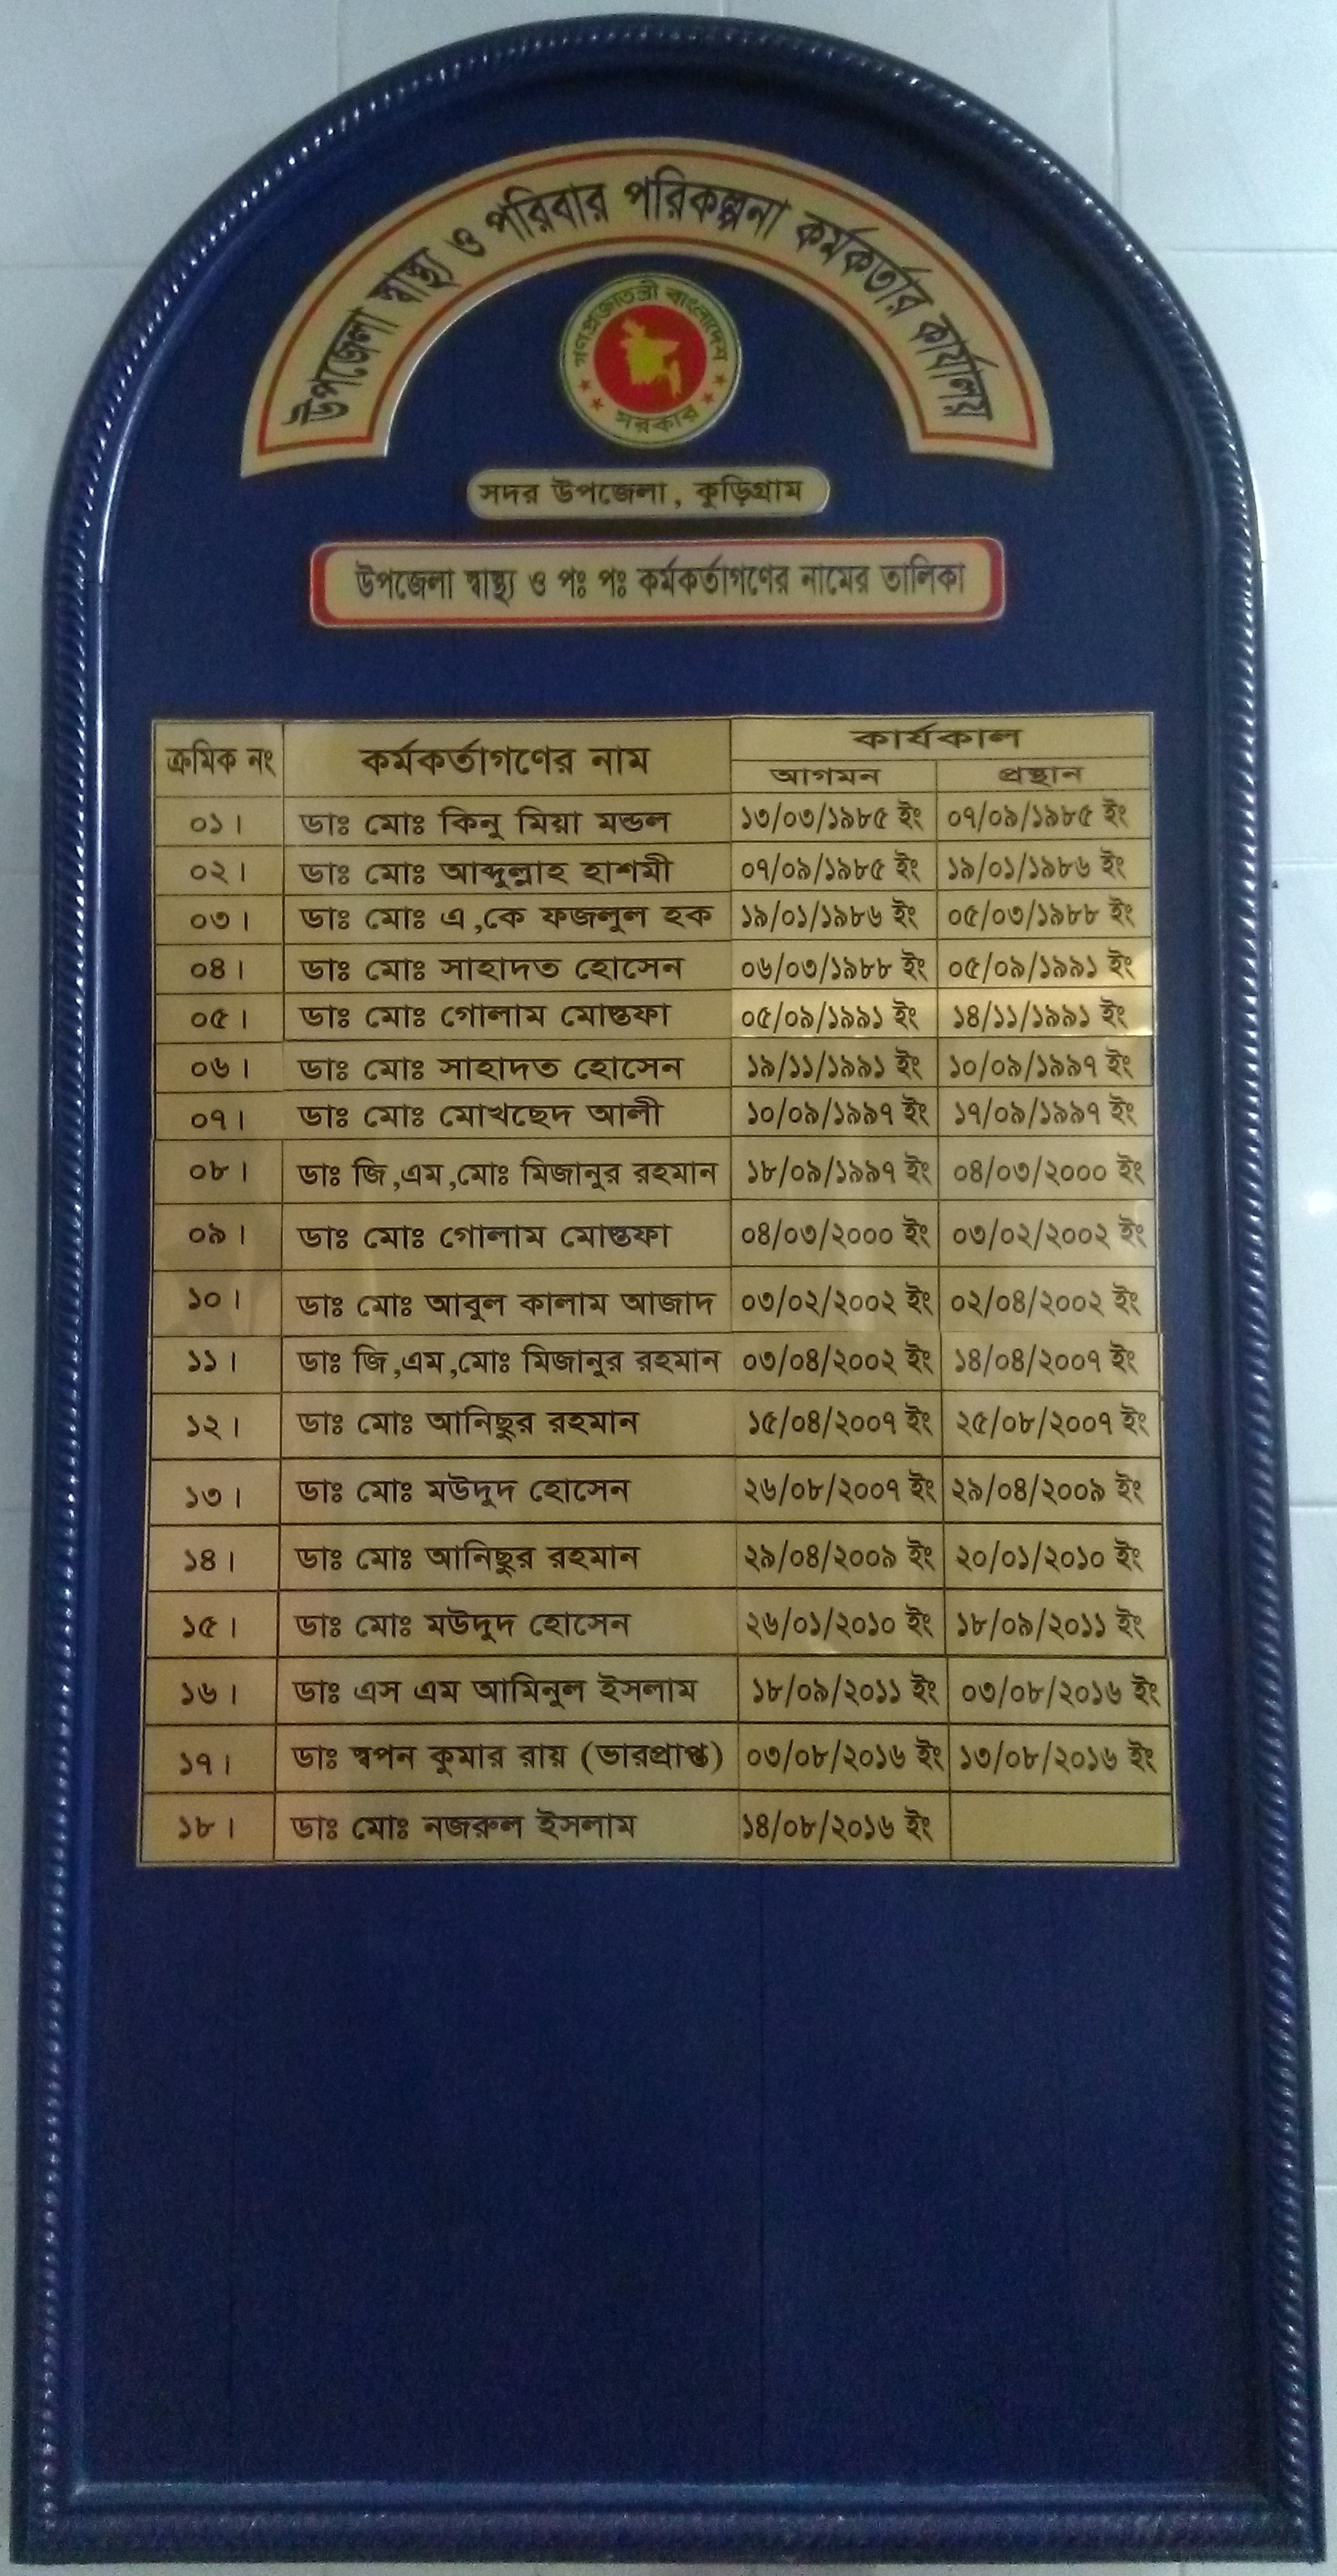 উপজেলা স্বাস্থ্য ও পরিবার পরিকল্পনা কর্মকর্তার কার্যালয়
গণপ্রজাতন্ত্রী বাংলাদেশ
সরকার
সদর উপজেলা, কুড়িগ্রাম
উপজেলা স্বাস্থ্য ও পঃ পঃ কর্মকর্তাগণের নামের তালিকা
ক্রমিক নং কর্মকর্তাগণের নাম কার্যকাল
আগমন প্রস্থান
০১। ডাঃ মোঃ কিনু মিয়া মন্ডল ১৩/০৩/১৯৮৫ ইং ০৭/০৯/১৯৮৫ ইং
০২। ডাঃ মোঃ আব্দুল্লাহ হাশমী ০৭/০৯/১৯৮৫ ইং ১৯/০১/১৯৮৬ ইং
০৩। ডাঃ মোঃ এ,কে ফজলুল হক ১৯/০১/১৯৮৬ ইং ০৫/০৩/১৯৮৮ ইং
০৪। ডাঃ মোঃ সাহাদত হোসেন ০৬/০৩/১৯৮৮ ইং ০৫/০৯/১৯৯১ ইং
০৫। ডাঃ মোঃ গোলাম মোস্তফা ০৫/০৯/১৯৯১ ইং ১৪/১১/১৯৯১ ইং
০৬। ডাঃ মোঃ সাহাদত হোসেন ১৯/১১/১৯৯১ ইং ১০/০৯/১৯৯৭ ইং
০৭। ডাঃ মোঃ মোখছেদ আলী ১০/০৯/১৯৯৭ ইং ১৭/০৯/১৯৯৭ ইং
০৮। ডাঃ জি,এম,মোঃ মিজানুর রহমান ১৮/০৯/১৯৯৭ ইং ০৪/০৩/২০০০ ইং
০৯। ডাঃ মোঃ গোলাম মোস্তফা ০৪/০৩/২০০০ ইং ০৩/০২/২০০২ ইং
১০। ডাঃ মোঃ আবুল কালাম আজাদ ০৩/০২/২০০২ ইং ০২/০৪/২০০২ ইং
১১। ডাঃ জি,এম,মোঃ মিজানুর রহমান ০৩/০৪/২০০২ ইং ১৪/০৪/২০০৭ ইং
১২। ডাঃ মোঃ আনিছুর রহমান ১৫/০৪/২০০৭ ইং ২৫/০৮/২০০৭ ইং
১৩। ডাঃ মোঃ মউদুদ হোসেন ২৬/০৮/২০০৭ ইং ২৯/০৪/২০০৯ ইং
১৪। ডাঃ মোঃ আনিছুর রহমান ২৯/০৪/২০০৯ ইং ২০/০১/২০১০ ইং
১৫। ডাঃ মোঃ মউদুদ হোসেন ২৬/০১/২০১০ ইং ১৮/০৯/২০১১ ইং
১৬। ডাঃ এস এম আমিনুল ইসলাম ১৮/০৯/২০১১ ইং ০৩/০৮/২০১৬ ইং
১৭। ডাঃ স্বপন কুমার রায় (ভারপ্রাপ্ত) ০৩/০৮/২০১৬ ইং ১৩/০৮/২০১৬ ইং
১৮। ডাঃ মোঃ নজরুল ইসলাম ১৪/০৮/২০১৬ ইং